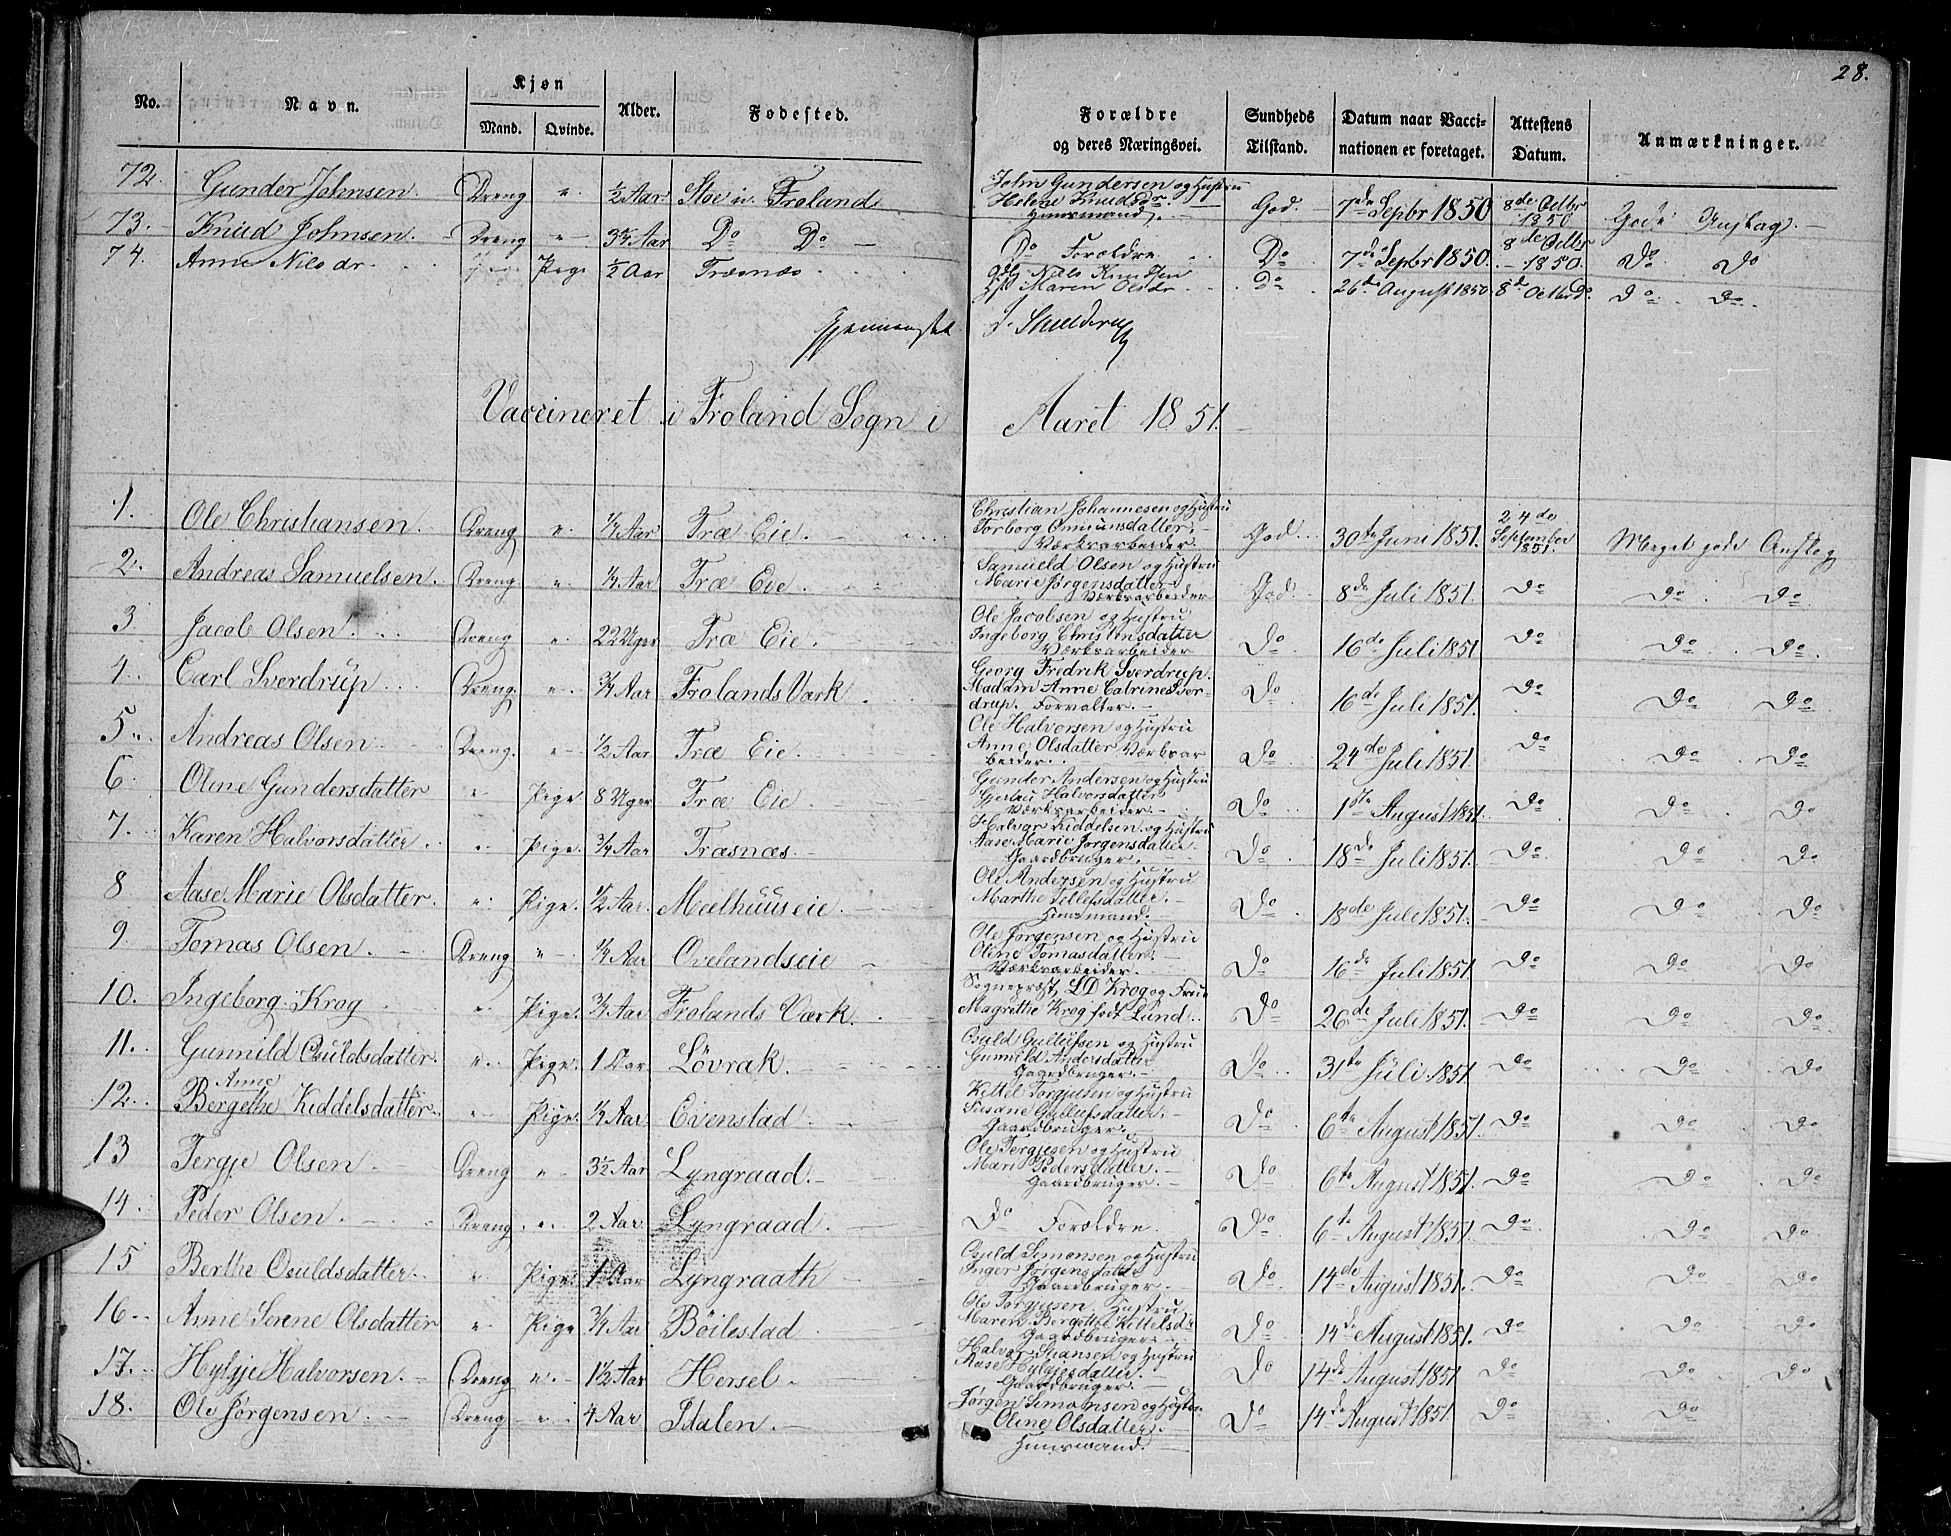 28.
No. Navn. Kjøn Mand. Qvinde. Alder. Fødested. Forældre og deres Næringsvei. Sundheds Tilstand. Datum naar Vaccinationen er foretaget. Attestens Datum. Anmærkninger.
72. Gunder Johnsen. Dreng " ½ Aar Stoe i Froland John Gundersen og Hustru Helene Knudsdr. Huusmand. God. 7de Septbr 1850 8de Octbr 1850 Gode Anslag.
73. Knud Johnsen. Dreng " 3¾ Aar Do Do Do Forældre Do 7de Septbr 1850. 8de Octbr 1850. Do Do
74. Anne Nilsdr. Pige ½ Aar Træsnæs Niels Knudsen Maren Olsdr. Do 26de August 1850 8de Octbr Do. Do Do.
Gjennemseet
Vaccineret i Froland Sogn i Aaret 1851.
1. Ole Christiansen. Dreng " ¼ Aar Træ Eie. Christian Johannesen og Hustru Torborg Omundsdatter. Værksarbeider God. 30te Juni 1851. 24de September 1851. Meget gode Anslag
2. Andreas Samuelsen. Dreng " ¼ Aar Træ Eie. Samueld Olsen og Hustru Marie Jørgensdatter Værksarbeider God. 8de Juli 1851. Do Do Do.
3 Jacob Olsen. Dreng " 22 Uger Træ Eie. Ole Jacobsen og Hustru Ingeborg Christensdatter Værksarbeider Do 16de Juli 1851 Do Do Do.
4. Carl Sverdrup. Dreng. " ¾ Aar Frolands Værk. Georg Fredrik Sverdrup. Madam Anne Catrine Sverdrup. Forvalter. Do 16de Juli 1851. Do Do Do
5. Andreas Olsen Dreng. " ½ Aar Træ Eie. Ole Halvorsen og Hustru Anne Olsdatter Værksarbeider. Do 24de Juli 1851. Do Do Do
6. Oline Gundersdatter " Pige 8 Uger Træ Eie. Gunder Andersen og Hustru Halvorsdatter Værksarbeider. Do 1ste August 1851. Do Do Do
7. Karen Halvorsdatter. " Pige. ¾ Aar Træsnæs. Halvor Kiddelsen og Hustru Aase Marie Jørgensdatter Gaardbruger. Do 18de Juli 1851. Do. Do Do
8 Aase Marie Olsdatter. " Pige. ½ Aar. Mælhuuseie. Ole Andersen og Hustru Marthe Tellefsdatter. Huusmand. Do 18de Juli 1851. Do Do Do
9. Tomas Olsen. Dreng " ¼ Aar Ovelandseie Ole Jørgensen og Hustru Oline Tomasdatter. Værksarbeider. Do 16de Juli 1851. Do Do Do
10. Ingeborg Krog " Pige. ¾ Aar Frolands Værk. Sognepræst LD Krog og Frue Magrethe Krog født Lund. Do 26de Juli 1851. Do Do Do.
11. Gunnild Osuldsdatter. " Pige. 1 Aar. Løvrak. Osuld Gullufsen og Hustru Gunnild Andersdatter Gaardbruger. Do 31te Juli 1851 Do Do Do
12. Anne Bergethe Kiddelsdatter " Pige. ¼ Aar. Evenstad Kittel Torgjusen og Hustru Susane Gullufsdatter. Gaardbruger. Do 6te August 1851. Do Do Do.
13 Tergje Olsen. Dreng " 3½ Aar Lyngraad. Ole Tergjesen og Hustru Mari Pedersdatter. Gaardbruger. Do 6te August 1851. Do Do Do.
14. Peder Olsen. Dreng " 2 Aar Lyngraad. Do Forældre. Do 6te August 1851 Do Do Do.
15 Berthe Osuldsdatter. " Pige. 1 Aar Lyngraath Osuld Simonsen og Hustru Inger Jørgensdatter Gaardbruger. Do 14de August 1851. Do Do Do
16. Anne Serene Olsdatter " Pige ¾ Aar Bøilestad Ole Torgjusen, Hustru Maren Bergethe Kittelsdr Gaardbruger. Do 14de August 1851. Do Do Do
17. Hylgje Halvorsen. Dreng " 1½ Aar Hersel. Halvor Hansen og Hustru Aase Hylgjesdatter. Gaardbruger. Do 14de August 1851 Do Do Do
18. Ole Jørgensen. Dreng " 4 Aar Idalen. Jørgen Simonsen og Hustru Oline Olsdatter. Huusmand. Do 14de August 1851 Do Do